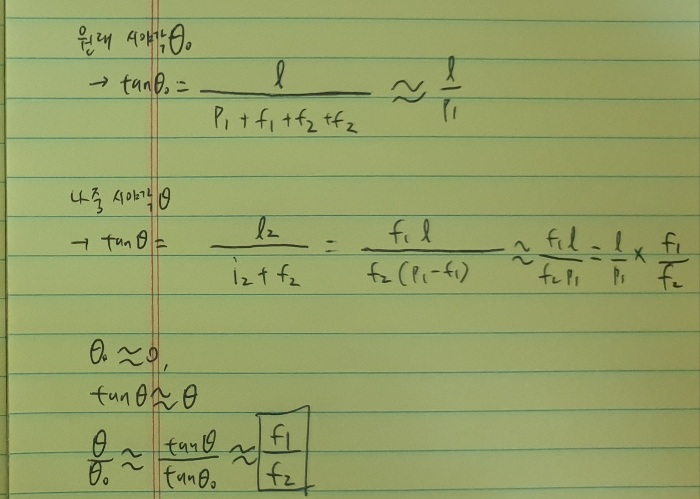 원래 시야각 θ₀
→ tanθ₀ = l / (P₁ + f₁ + f₂ + f₂) ≈ l / P₁
나중 시야각 θ
→ tanθ = l₂ / (i₂ + f₂) = f₁ l / f₂ (P₁ - f₁) ≈ f₁ l / f₂ P₁ = l / P₁ × f₁ / f₂
θ₀ ≈ 0,
tanθ ≈ θ
θ / θ₀ ≈ tanθ / tanθ₀ ≈ f₁ / f₂